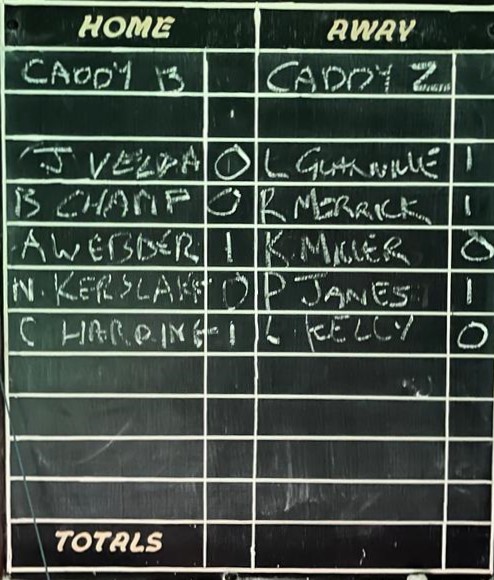 HOME AWAY
CADDY B CADDY Z
J 0 L 1
B CHAMP 0 R MERRICK 1
A WEBBER 1 K MILLER 0
N. KERSLAKE 0 P JANES 1
C HARDING 1 L KELLY 0
TOTALS